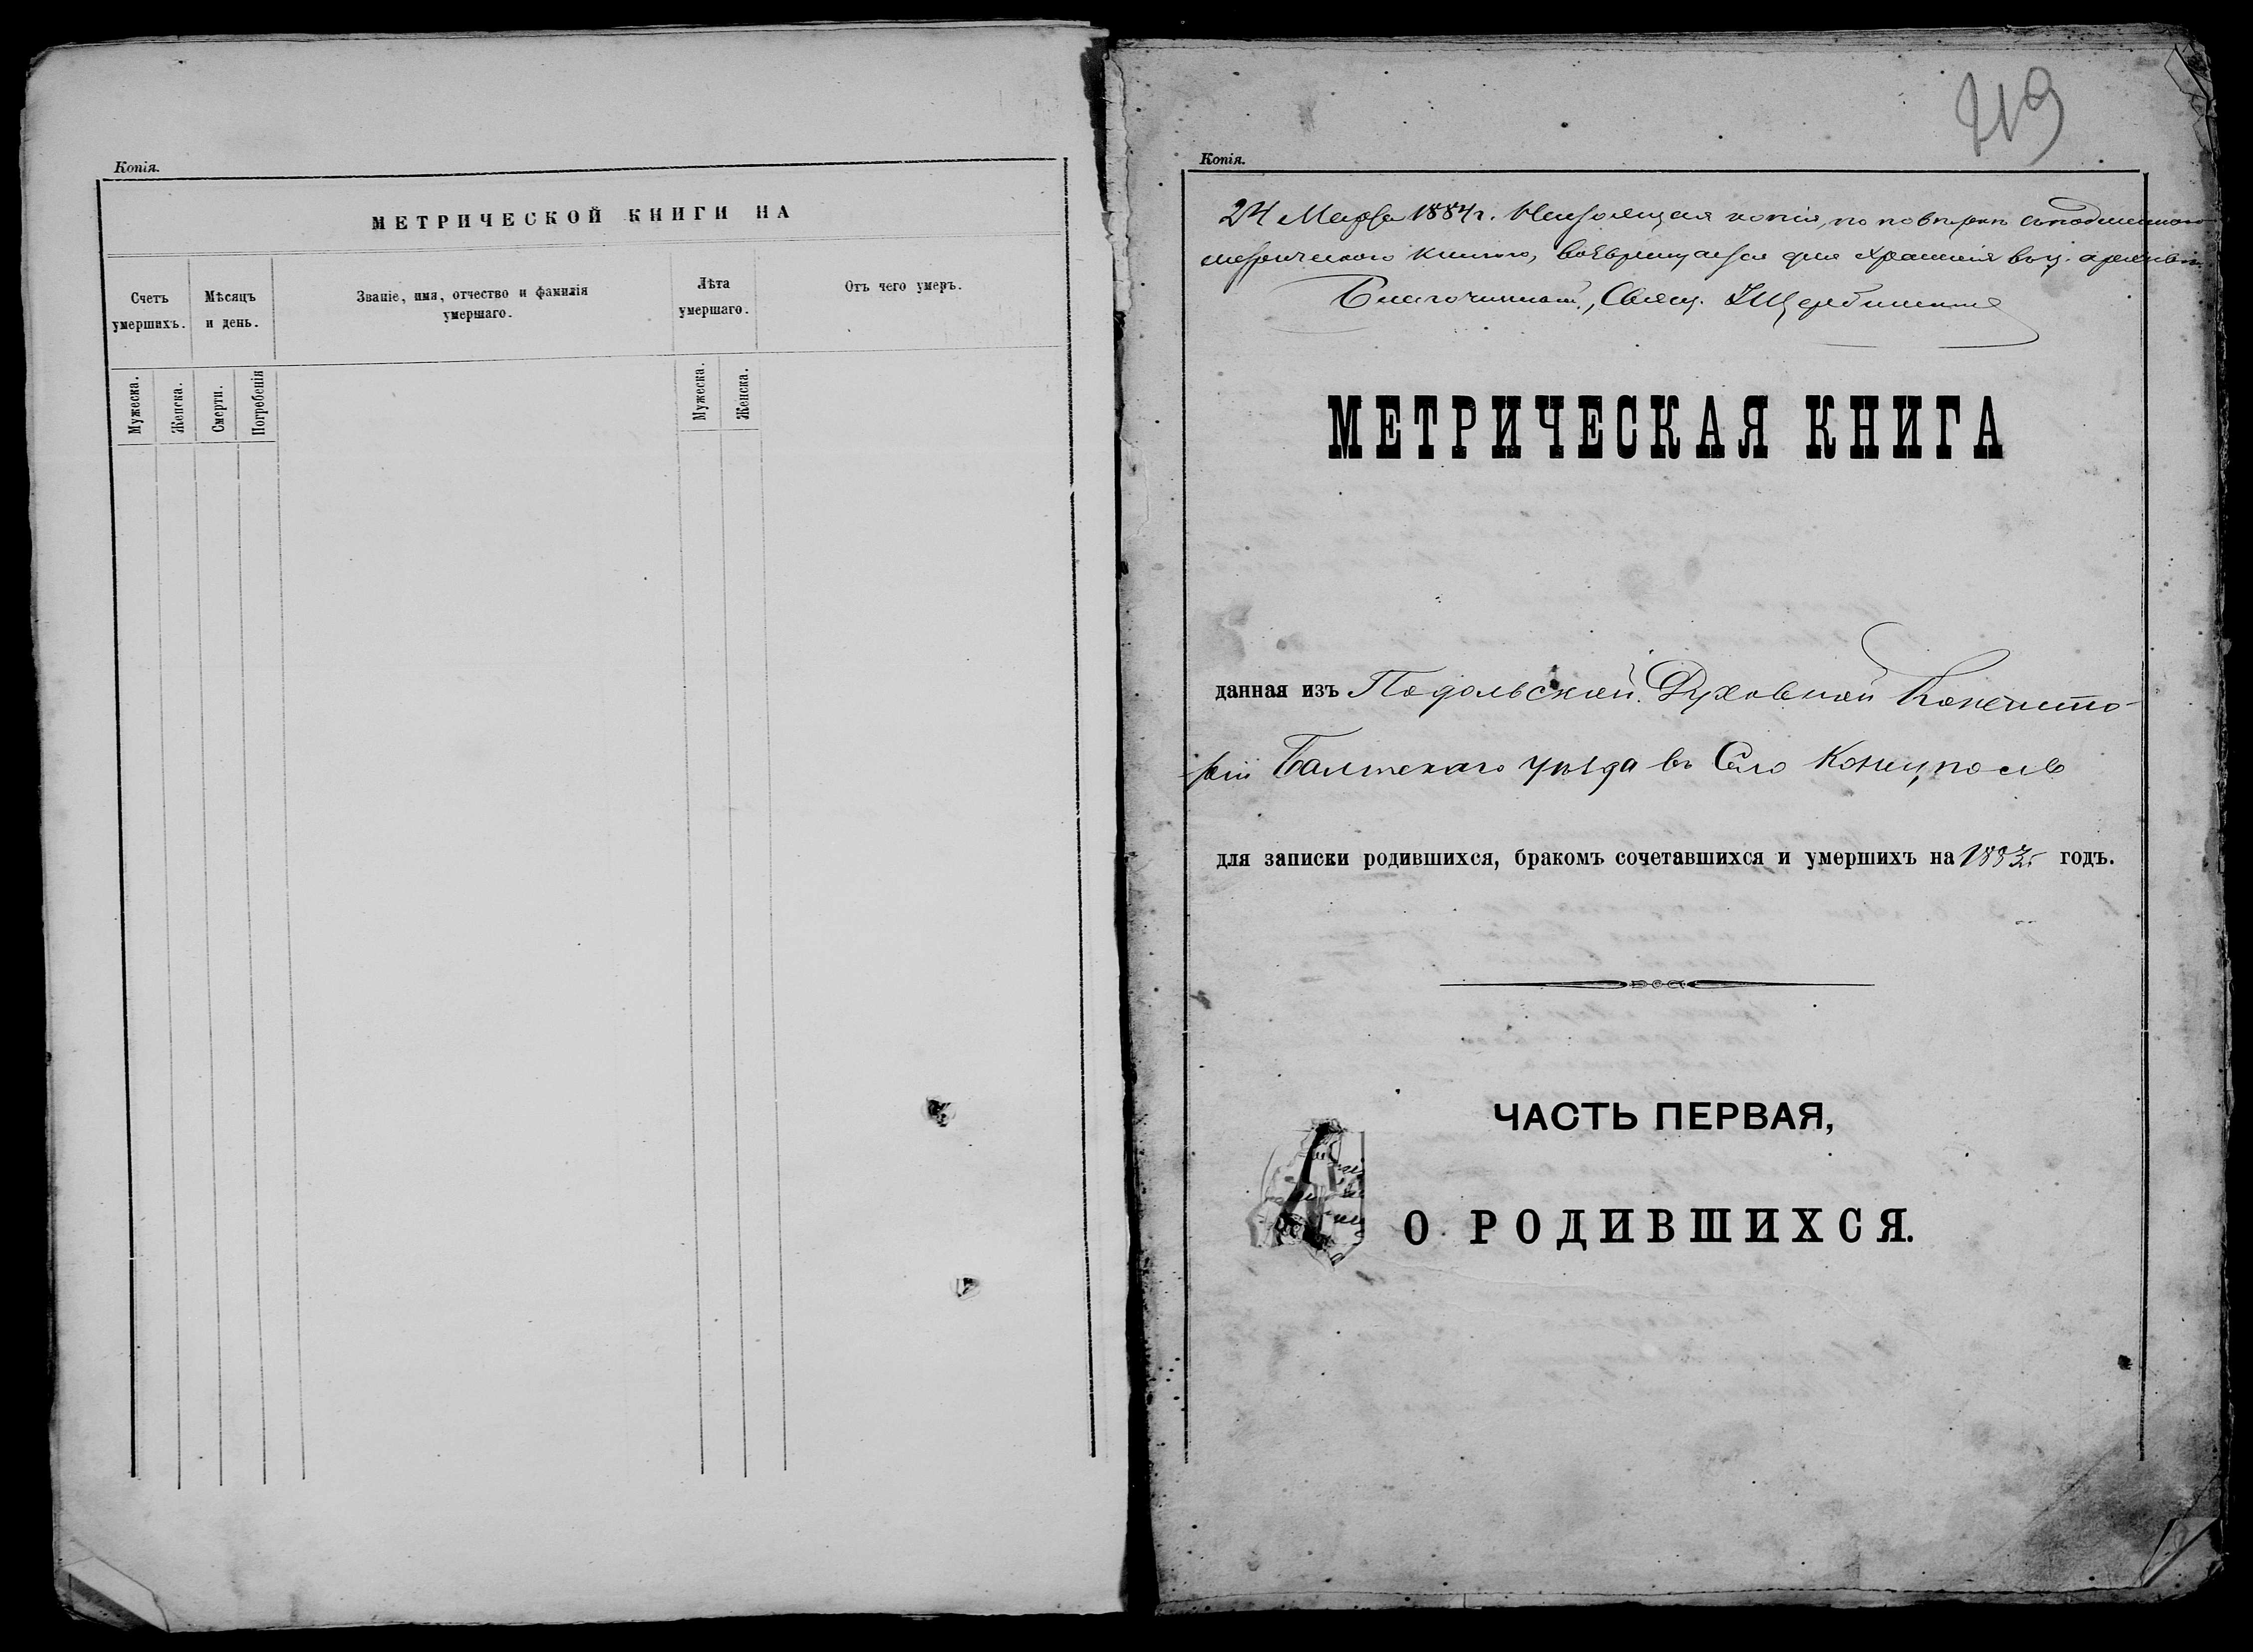 Копія.
МЕТРИЧЕСКОЙ КНИГИ НА
Счетъ умершихъ.
Мѣсяцъ и день.
Званіе, имя, отчество и фамилія умершаго.
Лѣта умершаго.
Отъ чего умеръ.
Мужеска.
Женска.
Смерти.
Погребенія
Мужеска.
Женска.
219
Копія.
24 Марта 1884 г. Настоящая копія, по повѣркѣ съ подлинною
метрическою книгою, возвращается для храненія въ ц. архивѣ.
Благочинный, Свящ.
МЕТРИЧЕСКАЯ КНИГА
данная изъ Подольской Духовной Консисто-
ріи Балтскаго уѣзда въ Село Конецполь
для записки родившихся, бракомъ сочетавшихся и умершихъ на 1883й годъ.
ЧАСТЬ ПЕРВАЯ,
О РОДИВШИХСЯ.